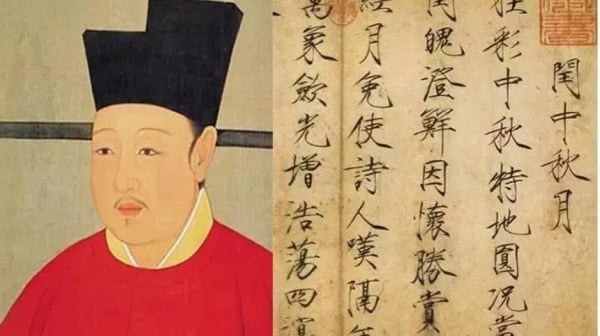 閏中秋月
桂彩中秋特地圓況當
閏魄澄鮮因懷勝賞
經月免使詩人嘆隔年
萬象歛光增浩蕩四溟